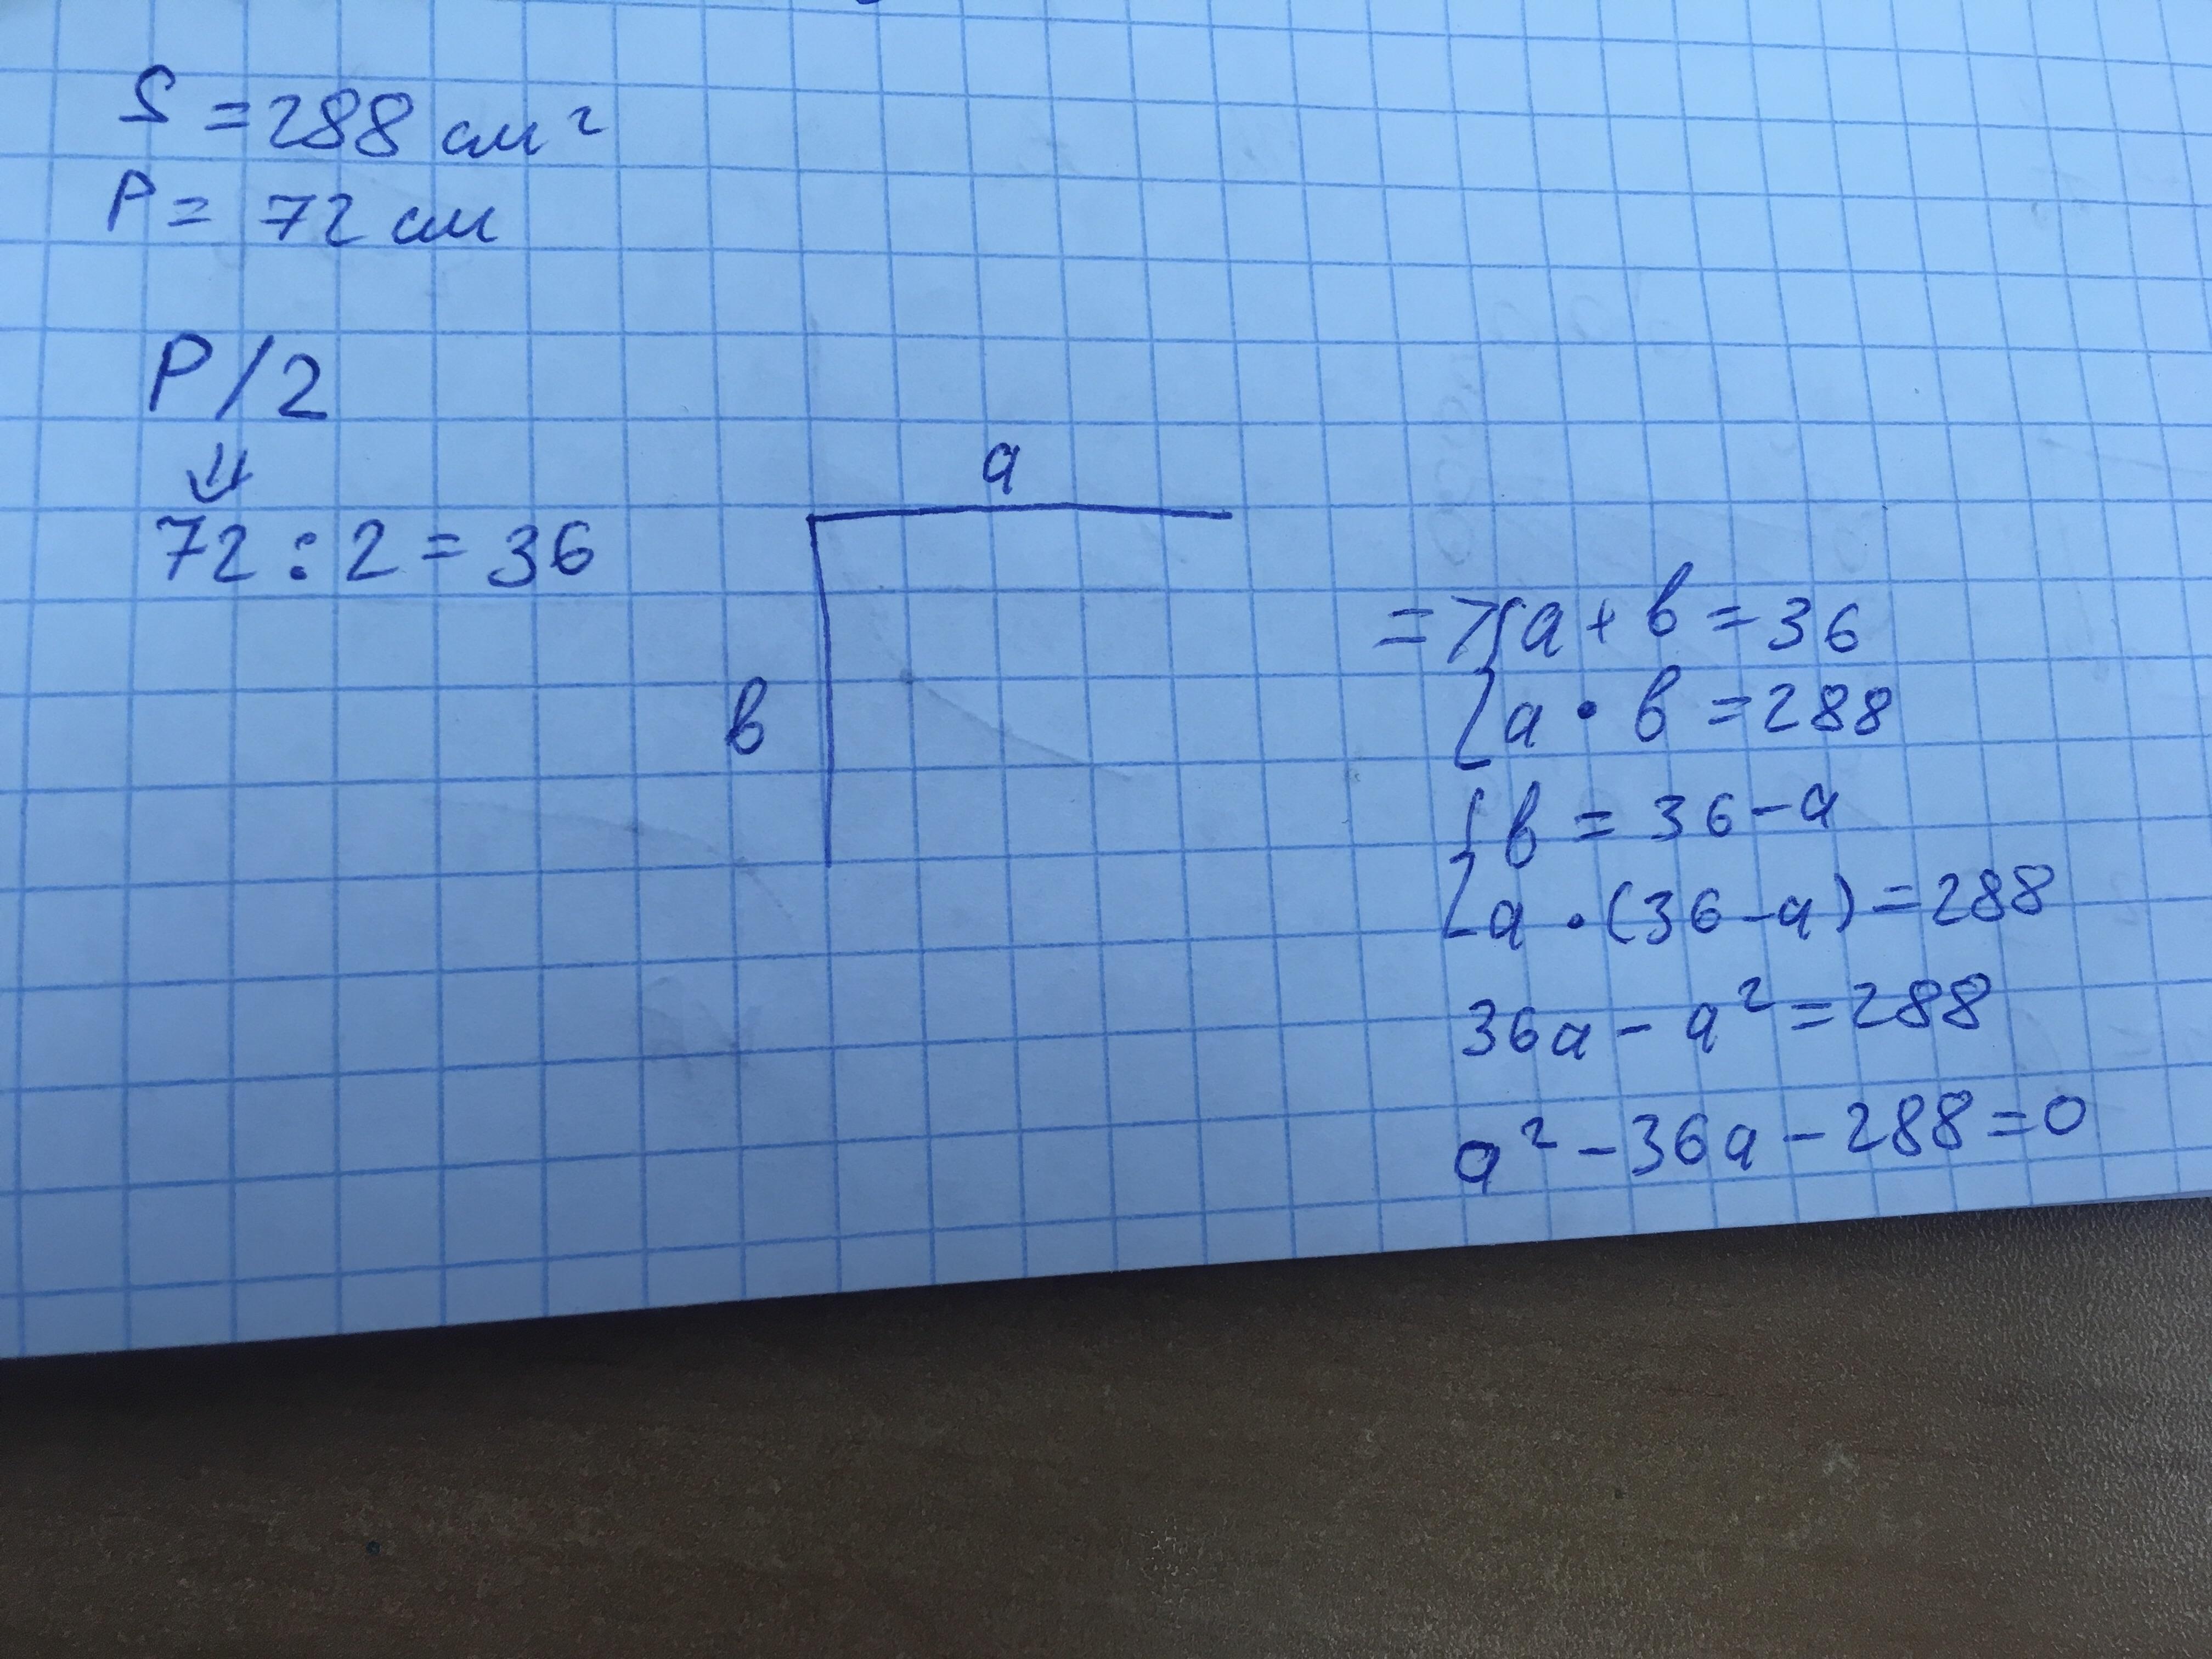 S = 288 см²
P = 72 см
P/2
⇓
72 : 2 = 36
a
в
=> { a + в = 36
{ a • в = 288
{ в = 36 - a
{ a • (36 - a) = 288
36a - a² = 288
a² - 36a - 288 = 0